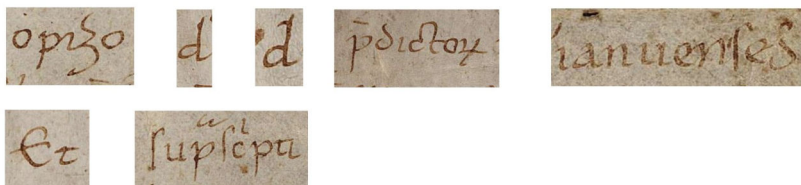 opizo d d p̄dictoꝝ ianuenses
Et supͣscͥpti